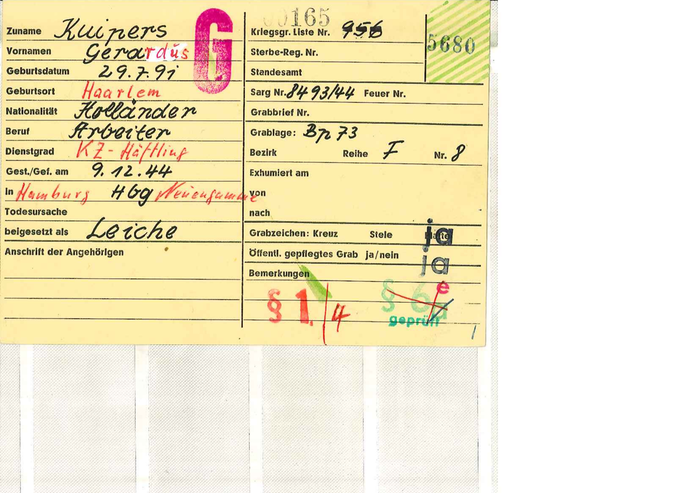 Zuname Kuipers
Vornamen Gerardus
Geburtsdatum 29.7.91
Geburtsort Haarlem
Nationalität Holländer
Beruf Arbeiter
Dienstgrad KZ-Häftling
Gest./Gef. am 9.12.44
in Hamburg Hbg Neuengamme
Todesursache
beigesetzt als Leiche
Anschrift der Angehörigen
G
165
Kriegsgr. Liste Nr. 956
5680
Sterbe-Reg. Nr.
Standesamt
Sarg Nr. 8493/44 Feuer Nr.
Grabbrief Nr.
Grablage: Bp 73
Bezirk Reihe F Nr. 8
Exhumiert am
von
nach
Grabzeichen: Kreuz Stele ja
Öffentl. gepflegtes Grab ja/nein ja
Bemerkungen
e
§ 1. / 4
§ 6
geprüft